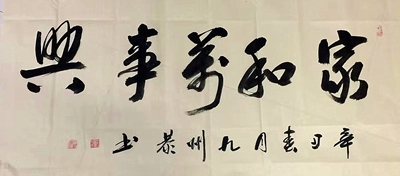 家和萬事興
辛丑春月九州恭书